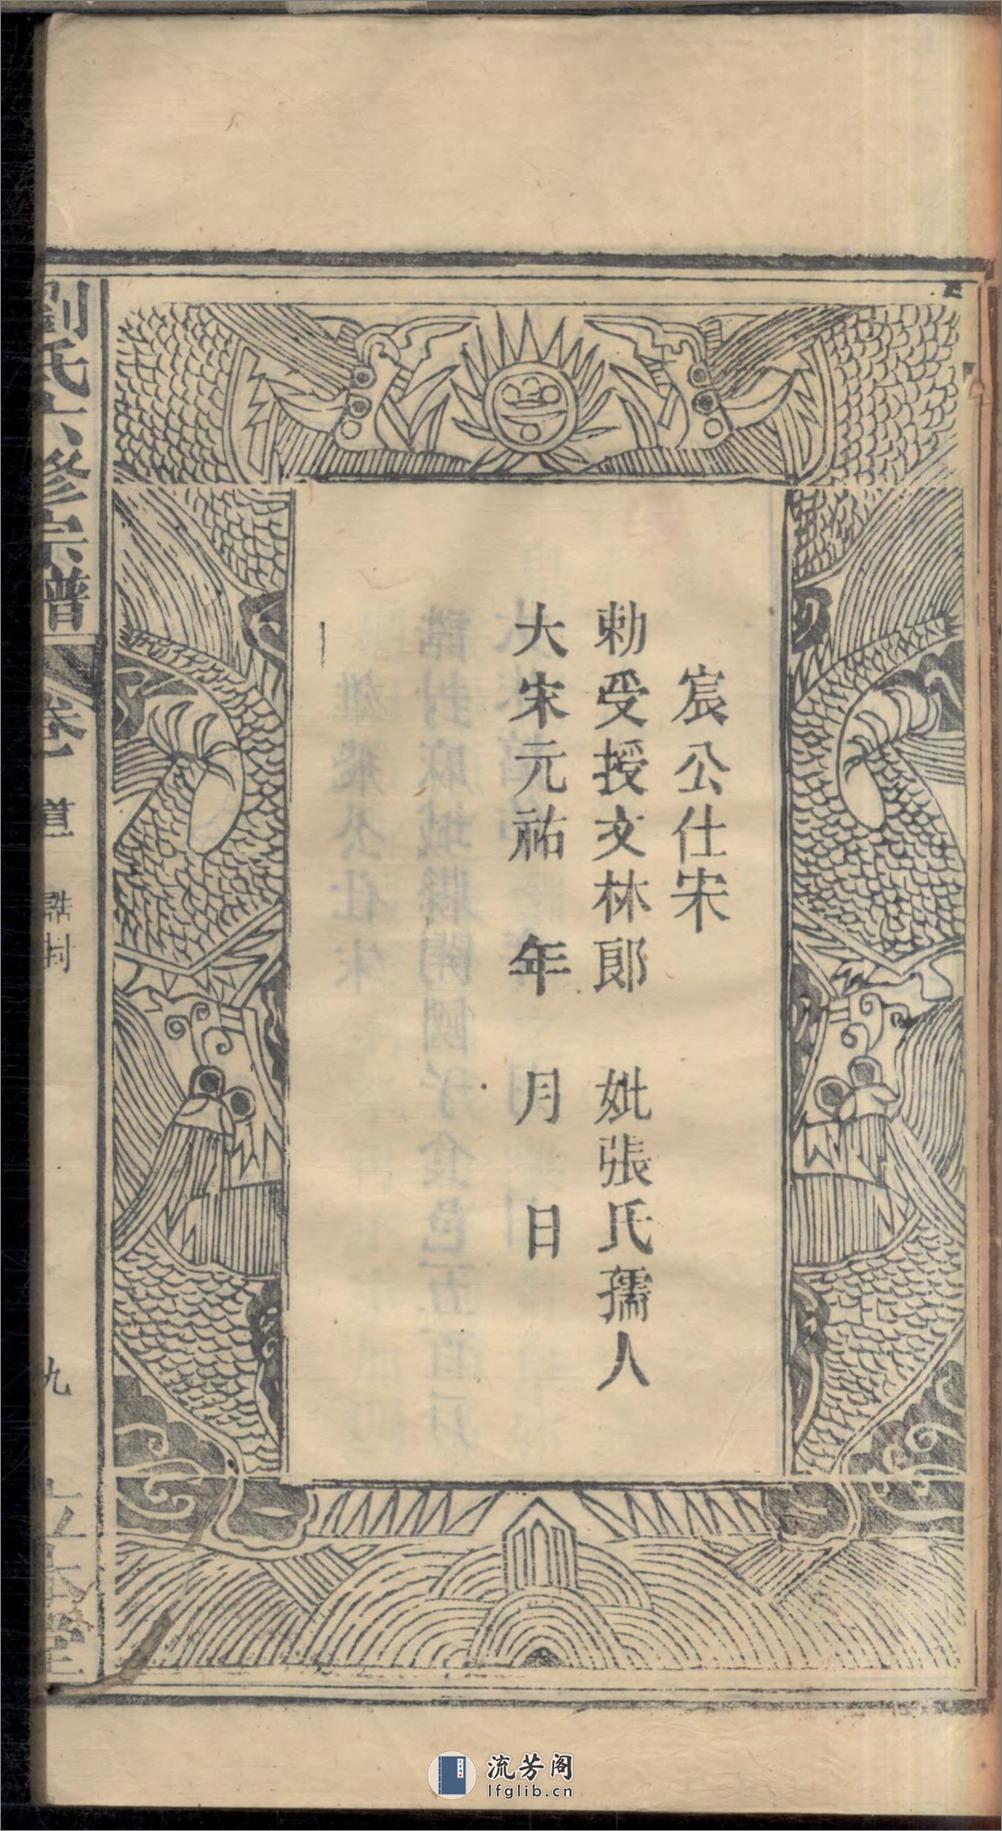 宸公仕宋
勅受授文林郎 妣張氏孺人
大宋元祐 年 月 日
劉氏六修宗譜
卷之
誥封
九
流芳阁
lfglib.cn